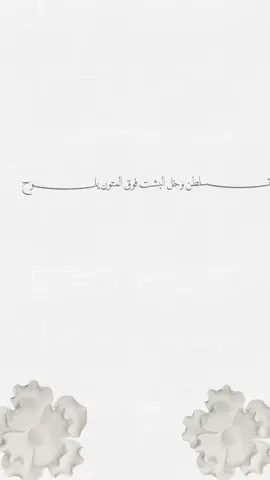 تسلطن وخل البشت فوق المتون يلوح